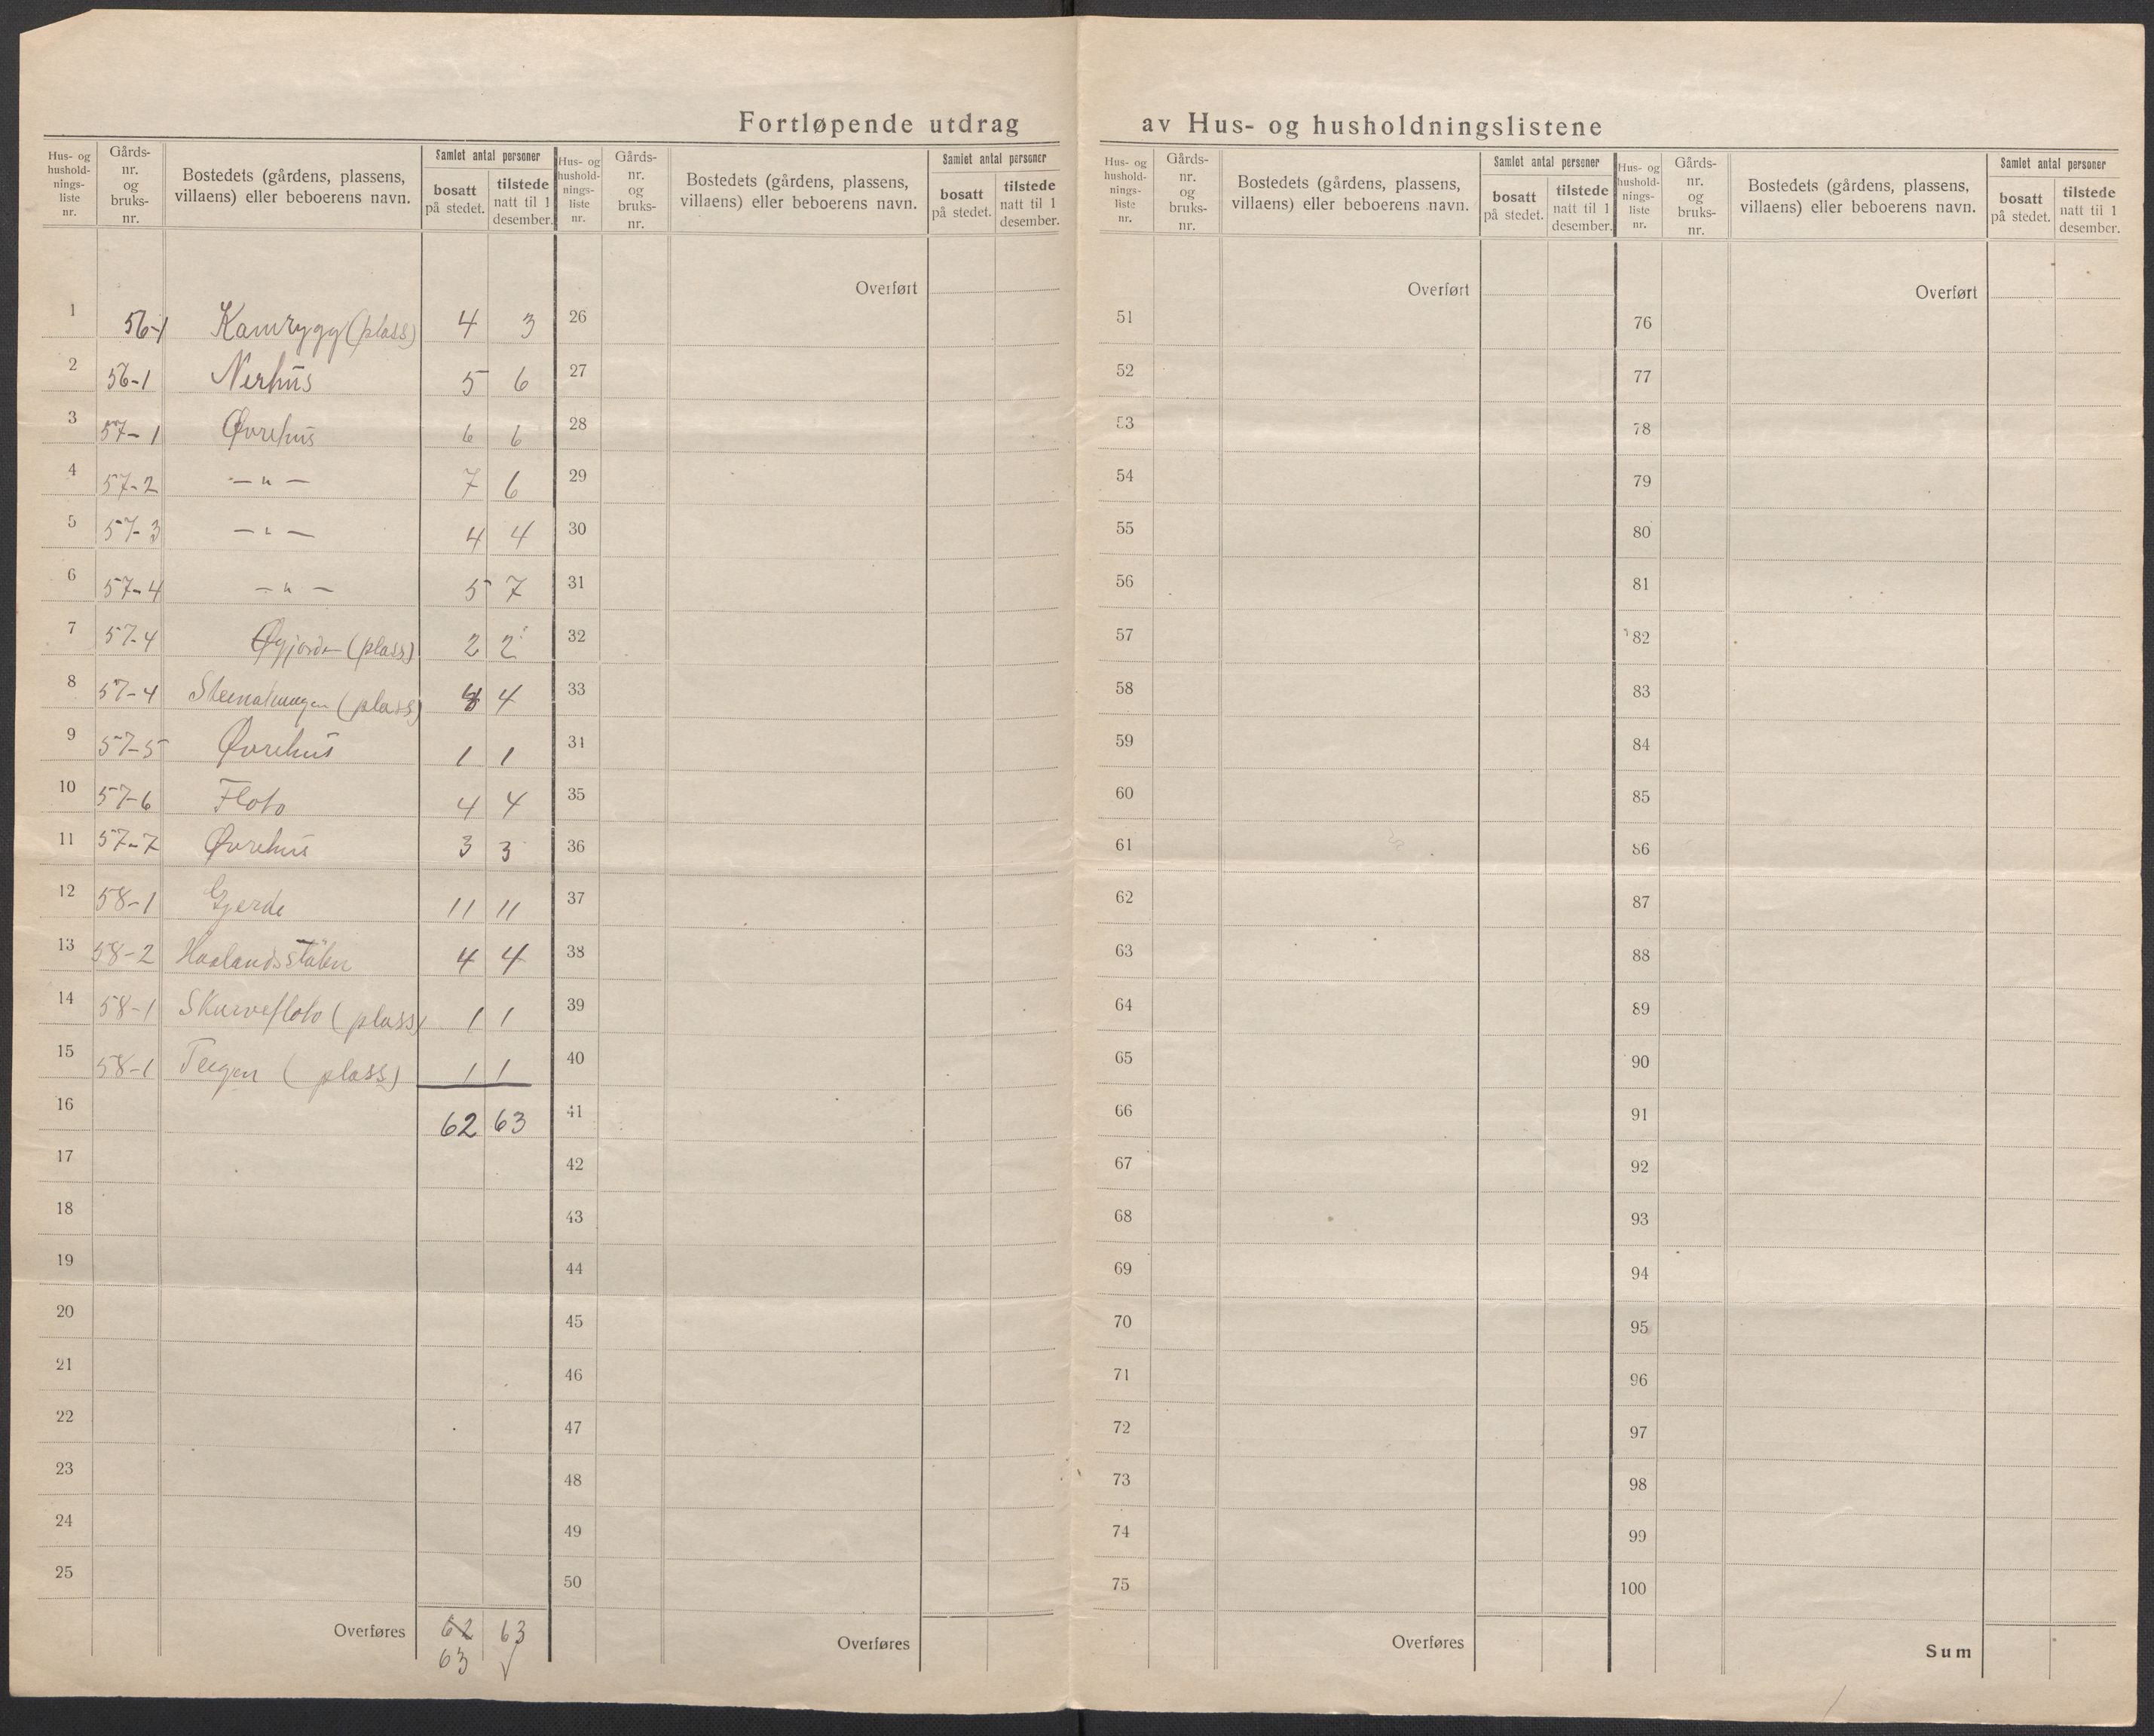 Fortløpende utdrag av Hus- og husholdningslistene
Hus- og hushold-nings-liste nr. | Gårds-nr. og bruks-nr. | Bostedets (gårdens, plassens, villaens) eller beboerens navn. | Samlet antal personer | bosatt på stedet. | tilstede natt til 1 desember.
Hus- og hushold-nings-liste nr. | Gårds-nr. og bruks-nr. | Bostedets (gårdens, plassens, villaens) eller beboerens navn. | Samlet antal personer | bosatt på stedet. | tilstede natt til 1 desember.
Hus- og hushold-nings-liste nr. | Gårds-nr. og bruks-nr. | Bostedets (gårdens, plassens, villaens) eller beboerens navn. | Samlet antal personer | bosatt på stedet. | tilstede natt til 1 desember.
Hus- og hushold-nings-liste nr. | Gårds-nr. og bruks-nr. | Bostedets (gårdens, plassens, villaens) eller beboerens navn. | Samlet antal personer | bosatt på stedet. | tilstede natt til 1 desember.
Overført Overført Overført
1 56-1 Kamrygg (plass) 4 3 26 51 76
2 56-1 Nerhus 5 6 27 52 77
3 57-1 Øvrehus 6 6 28 53 78
4 57-2 — " — 7 6 29 54 79
5 57-3 — " — 4 4 30 55 80
6 57-4 — " — 5 7 31 56 81
7 57-4 (plass) 2 2 32 57 82
8 57-4 (plass) 4 33 58 83
9 57-5 Øvrehus 1 1 34 59 84
10 57-6 Floto 4 4 35 60 85
11 57-7 Øvrehus 3 3 36 61 86
12 58-1 Gjerde 11 11 37 62 87
13 58-2 Haalandsstølen 4 4 38 63 88
14 58-1 Skurvefloto (plass) 1 1 39 64 89
15 58-1 Teigen (plass) 1 1 40 65 90
16 62 63 41 66 91
17 42 67 92
18 43 68 93
19 44 69 94
20 45 70 95
21 46 71 96
22 47 72 97
23 48 73 98
24 49 74 99
25 50 75 100
Overføres 62 63 Overføres Overføres Sum
63 √